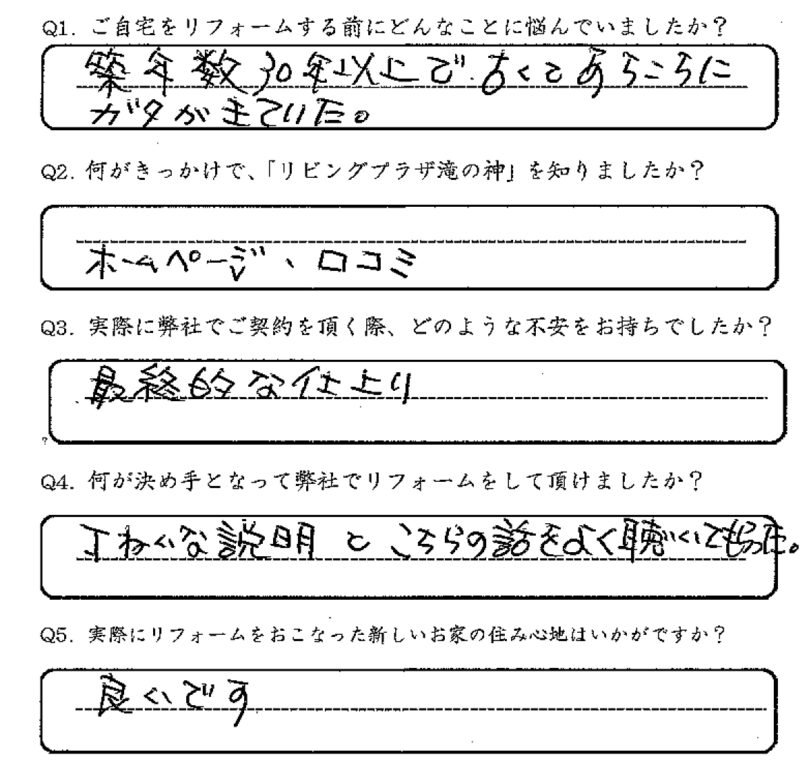 Q1. ご自宅をリフォームする前にどんなことに悩んでいましたか？
築年数30年以上で、古くてあちらこちらに
ガタがきていた。
Q2. 何がきっかけで、「リビングプラザ滝の神」を知りましたか？
ホームページ、口コミ
Q3. 実際に弊社でご契約を頂く際、どのような不安をお持ちでしたか？
最終的な仕上り
?
Q4. 何が決め手となって弊社でリフォームをして頂けましたか？
丁ねいな説明とこちらの話をよく聴いてもらった。
Q5. 実際にリフォームをおこなった新しいお家の住み心地はいかがですか？
良いです